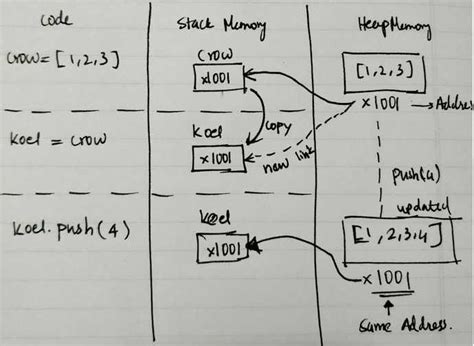 Code
Stack Memory
Heap Memory
Crow = [1,2,3]
Crow
x1001
[1,2,3]
x1001 → Address
copy
Koel = Crow
Koel
x1001
new link
push(4)
updated
Koel.push(4)
Koel
x1001
[1,2,3,4]
x1001
Same Address.